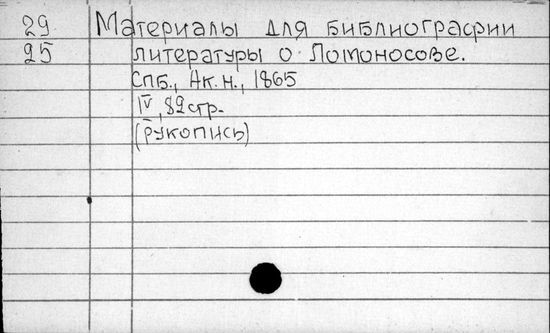 29. Материалы для библиографии
25 литературы о Ломоносове.
Спб., Ак.н., 1865
IV, 82 стр.
(рукопись)